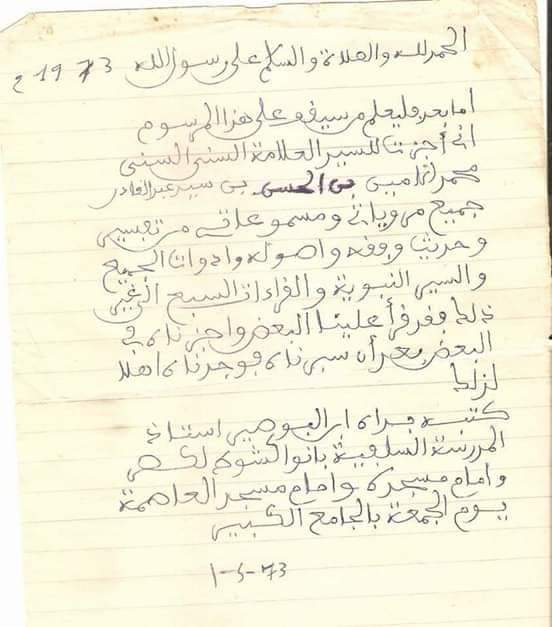 الحمد لله والصلاة والسلام على رسول الله 1973 م
أما بعد وليعلم من سيقف على هذا المرسوم
أني أجزت للسيد العلامة السني السني
محمد الأمين بن الحسن بن سيد عبد القادر
جميع مروياتي ومسموعاتي من تفسير
وحديث وفقه وأصوله وأدوات الجميع
والسير النبوية والقراءات السبع إلى غير
ذلك فقد قرأ علينا البعض وأجزناه في
البعض بعد أن سبرناه فوجدناه أهلا
لذلك
كتبه بداه ابن البوصيري أستاذ
المدرسة السلفية بانواكشوط لكصر
وإمام مسجده وإمام مسجد العاصمة
يوم الجمعة بالجامع الكبير
1-5-73